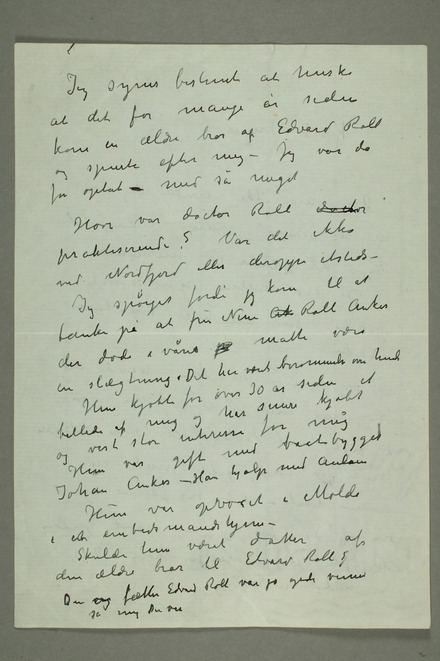 Jeg synes bestemt at huske
at det for mange år siden
kom en ældre bror af Edvard Roll
og spurte efter meg – Jeg var da
for optat – med så meget
Hvor var doctor Roll doctor
praktiserende? Var det ikke
ved Nordfjord eller deroppe etsteds –
Jeg spörger fordi jeg kom til at
tænke på at fru Nini Roll Anker
der døde i våres måtte være
en slægtning. Det har været om hende
Hun kjøbte for over 30 år siden et
billede af meg og har senere kjøbt
og vist stor interesse for mig
Hun var gift med baatbygger
Johan Anker – Han hjalp med
Hun var opvoxet i Molde
i et embedsmandshjem –
Skulde hun været datter af
den ældre bror til Edvard Roll?
Du og fætter Edvard Roll var jo gode venner
så